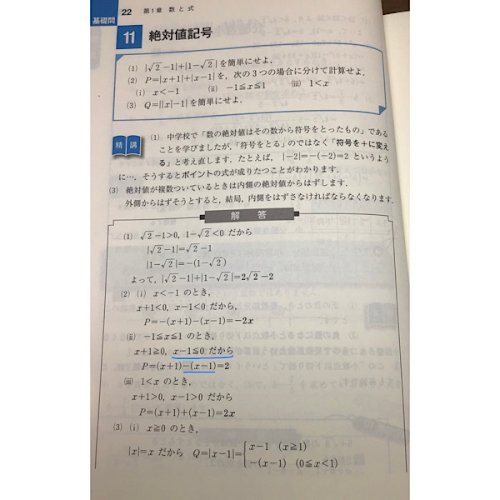 基礎問
22 第1章 数と式
11 絶対値記号
(1) |√2−1|+|1−√2| を簡単にせよ．
(2) P=|x+1|+|x−1| を，次の3つの場合に分けて計算せよ．
(i) x<−1 (ii) −1≦x≦1 (iii) 1<x
(3) Q=||x|−1| を簡単にせよ．
精講
(1) 中学校で「数の絶対値はその数から符号をとったもの」である
ことを学びましたが，「符号をとる」のではなく「符号を＋に変え
る」と考え直します．たとえば，|−2|=−(−2)=2 というよう
に…．そうするとポイントの式が成りたつことがわかります．
(3) 絶対値が複数ついているときは内側の絶対値からはずします．
外側からはずそうとすると，結局，内側をはずさなければならなくなります．
解答
(1) √2−1>0，1−√2<0 だから
|√2−1|=√2−1
|1−√2|=−(1−√2)
よって，|√2−1|+|1−√2|=2√2−2
(2) (i) x<−1 のとき，
x+1<0，x−1<0 だから，
P=−(x+1)−(x−1)=−2x
(ii) −1≦x≦1 のとき，
x+1≧0，x−1≦0 だから
P=(x+1)−(x−1)=2
(iii) 1<x のとき，
x+1>0，x−1>0 だから
P=(x+1)+(x−1)=2x
(3) (i) x≧0 のとき，
|x|=x だから Q=|x−1|={x−1 (x≧1)
−(x−1) (0≦x<1)